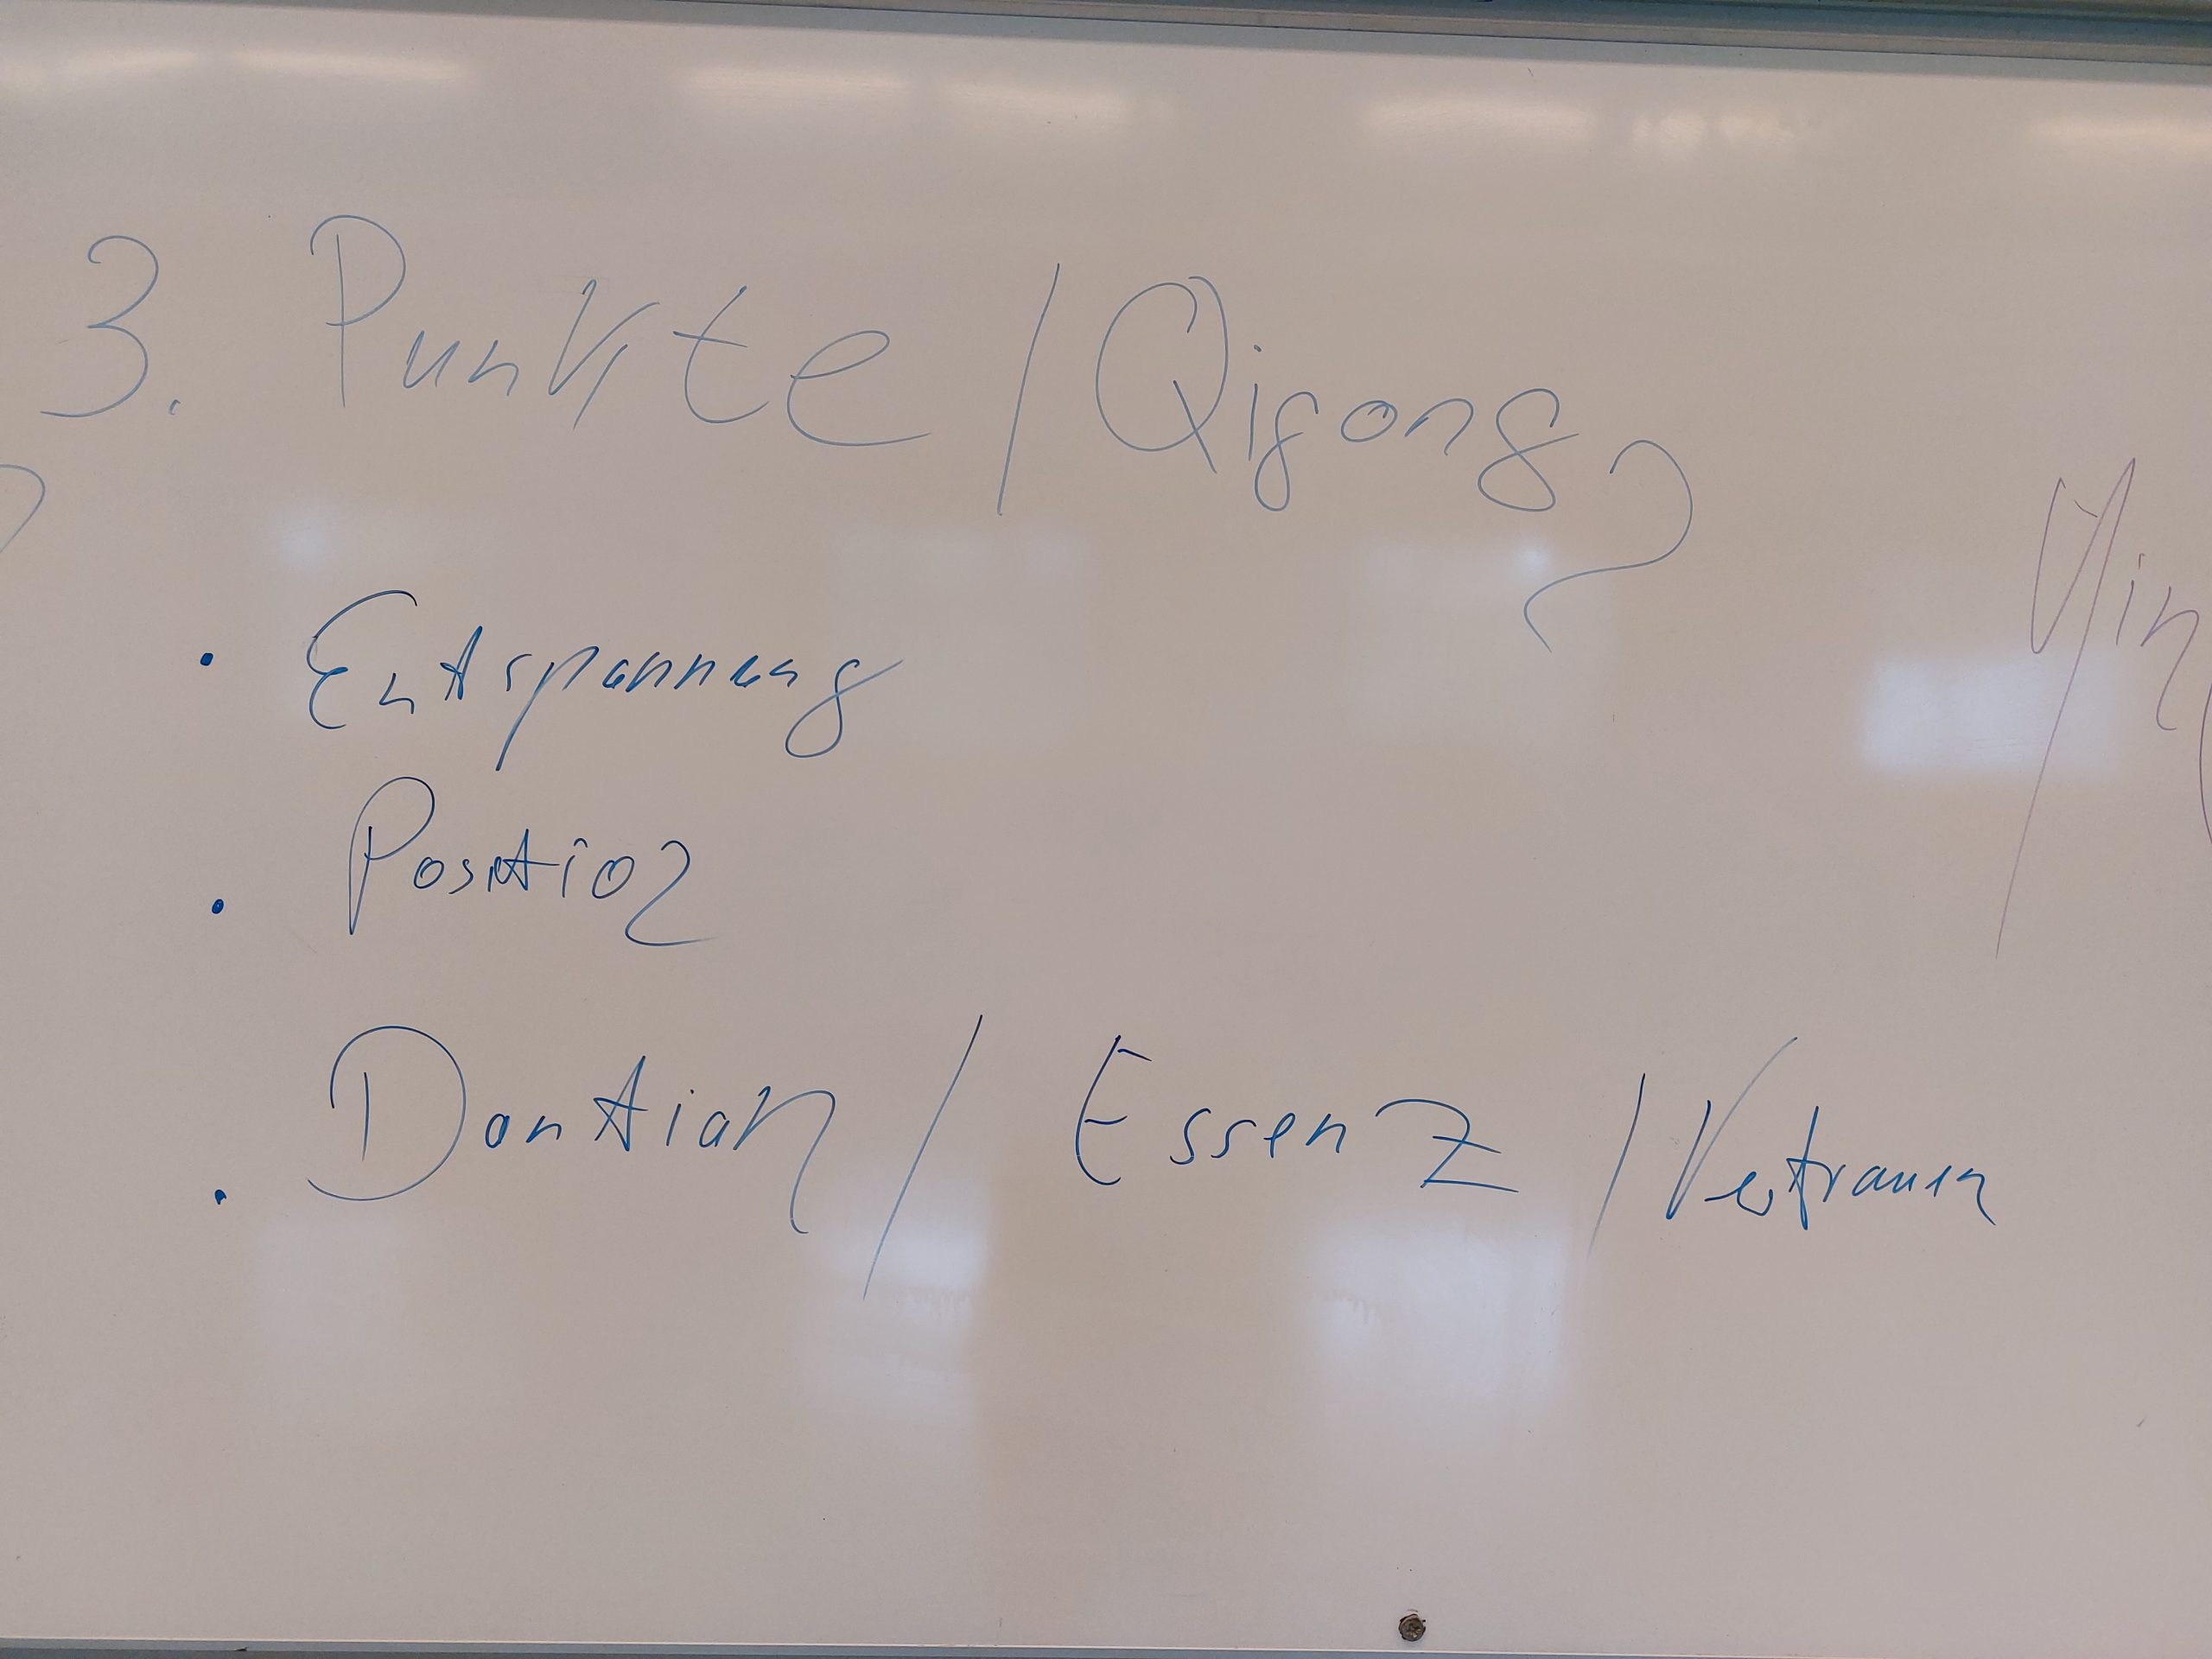 3. Punkte / Qigong?
• Entspannung
• Position
• Dantian / Essenz / Vertrauen
Yin